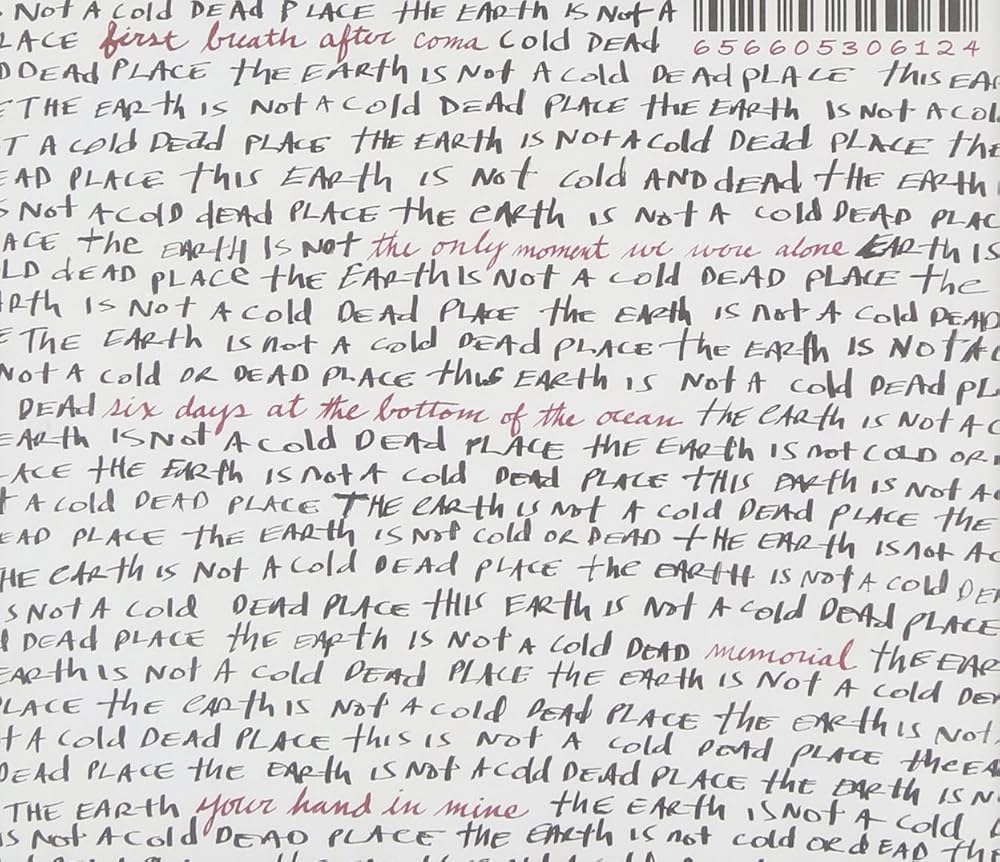 Not A cold DEAd PLACE tHE EARth Is Not A
LACE first breath after coma Cold DEAd
656605306124
DEAd PLACE the EARth IS Not A Cold DEAd plACE this EA
THE EARth is Not A Cold DEAd PLACE thE EARth IS Not A Col
T A cold DEad PLACE tHE EARth IS Not A Cold DEad PLACE the
EAD PLACE this EARth IS Not cold AND dEAd tHE EARth
Not A ColD dEAd PLACE the eARth is Not A cold DEAD PLAC
ACE the EARtH Is Not the only moment we were alone EARth IS
LD dEAD PLACe the EARth Is Not A Cold DEAD PLACE the
ARth Is Not A Cold DEAd PlACE the EARth is not A Cold DEAD
THE EARth is not A cold DEAd PLACE the EARth IS Not A C
Not A Cold OR DEAD PLACE this EARth is Not A cold DEAd PL
DEAd six days at the bottom of the ocean tHe EARth is Not A C
EARth IS Not A Cold DEAd PLACE the EARth IS not COLD OR
LACE tHE EARth is Not A Cold DEAd PLACE THIS EARth IS Not A
T A Cold DEAD PLACE THE EARth is Not A cold DEAd PLACE the
EAD PLACE the EARth IS Not Cold OR DEAD tHE EARth IS Not A
HE EARth is Not A Cold DEAd PLACE the EARtH IS Not A cold DE
s Not A Cold DEAd PLACE tHIS EARth IS Not A cold DEAd PLACE
DEAd PLACE the EARth IS Not A Cold DEAD memorial the EAR
EARth IS Not A Cold DEAd PLACE the EARth IS Not A cold DE
LACE the EARth IS Not A Cold DEAd PLACE the EARth is Not
t A Cold DEAd PLACE this is Not A cold DEAd PLACE the EA
DEAd PLACE the EARth IS Not A Cold DEAd PLACE the EARth is N
THE EARth your hand in mine the EARth is Not A Cold
is Not A Cold DEAD PLACE the EARth is not cold OR dEAD th